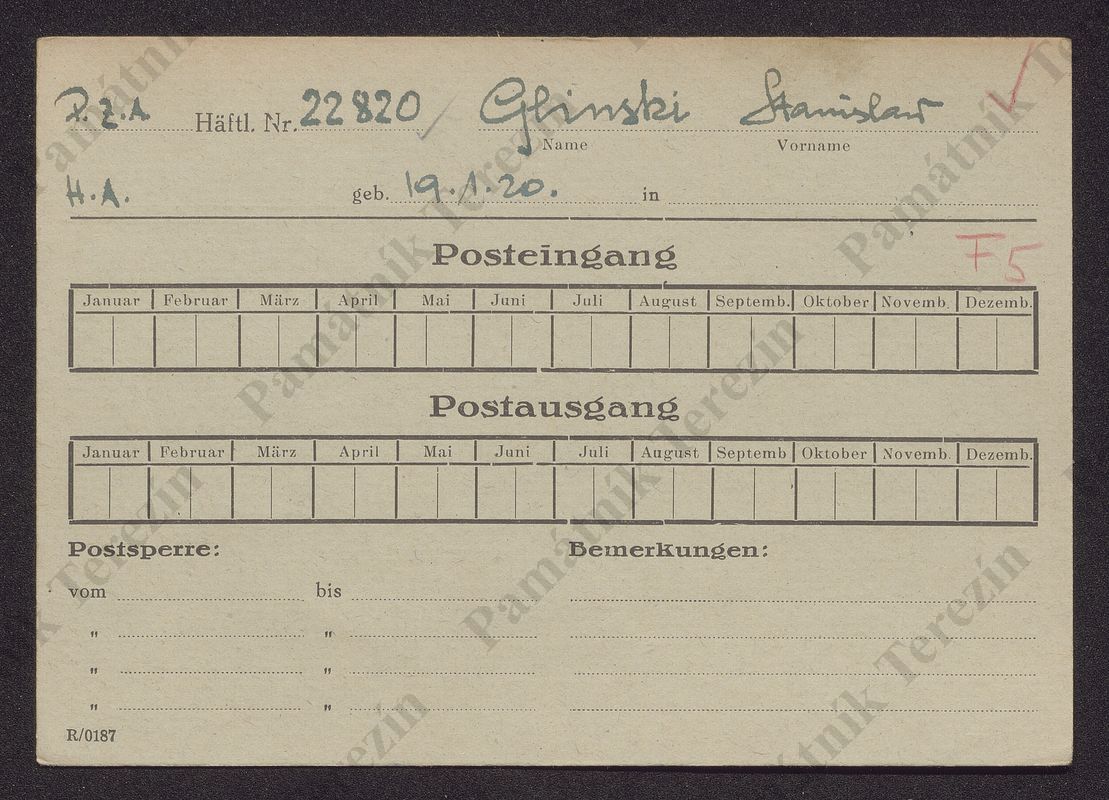 P.Z.A Häftl. Nr. 22820 Glinski Stanislaw
Name Vorname
H.A. geb. 19.1.20. in
Posteingang
F5
Januar Februar März April Mai Juni Juli August Septemb. Oktober Novemb. Dezemb.
Postausgang
Januar Februar März April Mai Juni Juli August Septemb Oktober Novemb. Dezemb.
Postsperre: Bemerkungen:
vom bis
" "
" "
" "
R/0187
Památník Terezín